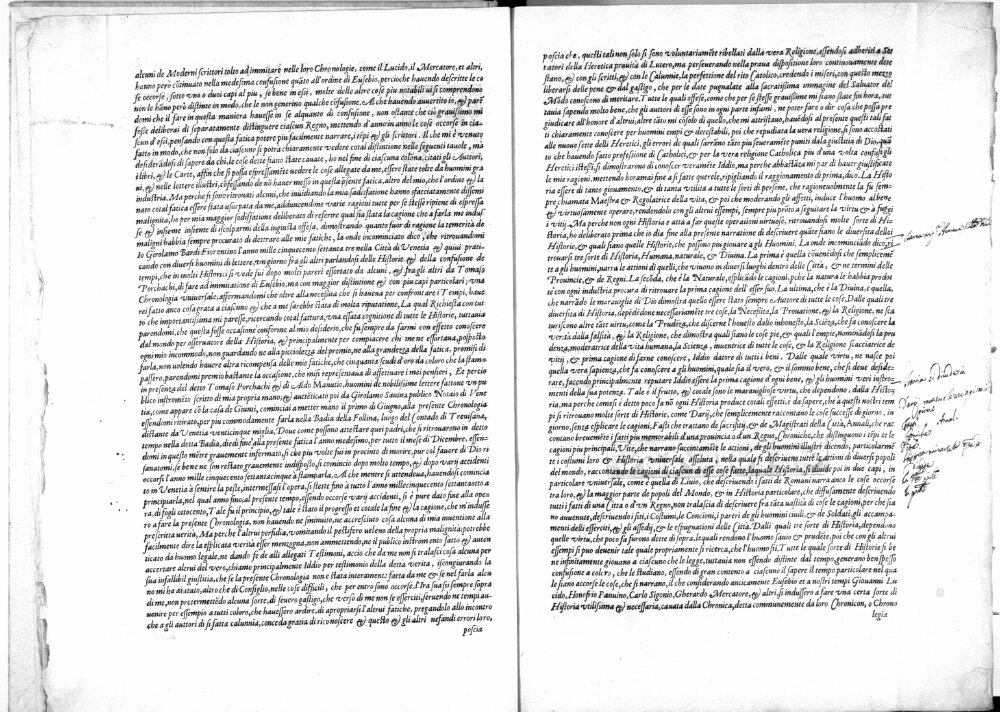 alcuni de Moderni scrittori tolto ad immitare nelle loro Chronologie, come il Lucido, il Mercatore, et altri,
hanno però cōtinuato nella medesima confusione quāto all'ordine di Eusebio, percioche hauendo descritte le co
se occorse, sotto vno o duoi capi al piu, se bene in essi, molte delle altre cose piu notabili vi si comprendono
non le hāno però distinte in modo, che non generino qualche cōfusione. Al che hauendo auuertito in, & parē
domi che il fare in questa maniera hauesse in se alquanto di confusione, non ostante che ciò grauissimo mi
fosse deliberai di separatamente distinguere ciascun Regno, mettendo d'anno in anno le cose occorse in cia-
scun d'essi, pensando con questa fatica potere piu facilmente narrare, i tēpi & gli scrittori. Il che mi è venuto
fatto in modo, che non solo da ciascuno si potra chiaramente vedere cotal distinctione nelle seguenti tauole, mà
desiderādosi di sapere da chi, le cose dette siano state cauate, ho nel fine di ciascuna colōna, citati gli Auttori,
i libri, & le Carte, affin che si possa espressamēte uedere le cose allegate da me, essere state tolte da huomini gra
ui, & nelle lettere illustri, cōfessando de nō hauer messo in questa pnsente fatica, altro del mio, che l'ordine & la
industria. Ma perche si sono ritrouati alcuni, che inuidiando la mia sodisfatione hanno sfacciatamente dissemi
nato cotal fatica essere stata usurpata da me, adducendone varie ragioni tutte per se stesse ripiene di espressa
malignita, ho per mia maggior sodisfatione deliberato di referire qual sia stata la cagione che a farla me indus
se & insieme insieme di scolparmi della ingiusta offesa, dimostrando quanto fuor di ragione la temerità de
maligni habbia sempre procurato di detrarre alle mie fatiche, la onde incominciando dico, che ritrouandomi
Io Girolamo Bardi Fiorentino l'anno mille cinquecento settanta tre nella Città di Venetia & quiui prati-
cando con diuersi huomini di lettere, vn giorno fra gli altri parlandosi delle Historie, & della confusione de
tempi, che in molti Historici si vede fui dopo molti pareri essortato da alcuni, & fra gli altri da Tomaso
Porchachi, di fare ad immitatione di Eusebio, ma con maggior distintione & con piu capi particulari, vna
Chronologia vniuersale, affermandomi che oltre alla necessita che si haueua per confrontare i Tempi, haue
rei fatto ancosa grata a ciascuno & che a me sarebbe stata di molta riputatione. La qual Richiesta con tut-
to che importantissima mi paresse, ricercando cotal fattura, vna essatta cognitione di tutte le Historie, tuttauia
parendomi, che questa fosse occasione conforme al mio desiderio, che fu sempre da farmi con effetto conoscere
dal mondo per osseruatore della Historia, & principalmente per compiacere chi me ne essortaua, posposto
ogni mio incommodo, non guardando ne alla picciolezza del premio, ne alla grandezza della fatica, promisi di
farla, non uolendo hauere altra ricompensa delle mie fatiche, che cinquanta scudi d'oro da coloro che la stam-
passero, parendomi premio bastante la occasione, che misi representaua di assettuare i mei pensieri. Et percio
in presenza del detto Tomaso Porchachi & di Aldo Manutio, huomini de nobilissime lettere fattone vn pu
blico instromēto, scritto di mia propria mano, & auttēticato poi da Girolamo Sauina publico Notaio di Vene
tia, come appare cō la casa de Giunti, cominciai a metter mano il primo di Giugno, alla presente Chronologia
essendomi ritirato, per piu commodamente farla nella Badia della Follina, luogo del Contado di Treuisana,
distante da Venetia uenticinque miglia, Doue come possono attestare quei padri, che si ritrouarono in detto
tempo nella detta Badia, diedi fine alla presente fatica l'anno medesimo, per tutto il mese di Dicembre, essen-
domi in questo mētre grauemente infermato, si che piu volte fui in procinto di morire, pur col fauore di Dio ri
sanatomi, se bene non son restato grauamente indisposto, si comincio dopo molto tempo, & dopo varij accidenti
occorsi l'anno mille cinquecento settantacinque à stamparla. Al che mentre si attendeua, hauendosi comincia
to in Venetia à sentire la peste, intermessasi l'opera, si stette fino à tutto l'anno millecinquecento settantaotto a
principiarla, nel qual anno fino, al presente tempo, essendo occorse varij accidenti, si è pure dato fine alla ope-
ra, di fogli ottocento, Tal fu il principio, & tale è stato il progresso et cotale la fine & la cagione, che m'indusse
ro a fare la presente Chronologia, non hauendo ne sminuito, ne accresciuto cosa alcuna di mia inuentione alla
prescritta uerita. Ma perche l'altrui perfidia, vomitando il pestifero ueleno della propria malignità potrebbe
facilmente dire la esplicata verita esser menzogna, non ammettendo, ne il publico instromento fatto & auten
ticato da huomo legale, ne dando fe de alli allegati Testimoni, accio che da me non si tralasci cosa alcuna per
accertare altrui del vero, chiamo principalmente Iddio per testimonio della detta verita, iscongiurando la
sua infallibil giustitia, che se la presente Chronologia non e stata interamente fatta da me & se nel farla alcu
no mi ha aiutato, altro che di Consiglio, nelle cose difficili, che per entro sono occorse. l'Ira sua si sempre sopra
di me, non pretermettēdo alcuna sorte, di seuero gastigo, che verso di me non se esserciti, seruendo ne tempi au-
uenire per essempio a tutti coloro, che hauessero ardire, di apropriarsi l'altrui fatiche, pregandolo allo incontro
che a gli auttori di si fatta calunnia, conceda gratia di riconoscere & questo & gli altri nefandi errori loro,
poscia
poscia che, questi tali non solo si sono voluntariamēte ribellati dalla vera Religione, essendosi adheriti a Set
tatori della Heretica prauità di Lutero, ma perseuerando nella praua dispositione loro continouamente dete
stano, & con gli scritti, & con le Calunnie, la perfettione del rito Catolico, credendo i miseri, con questo mezzo
liberarsi delle pene & dal gastigo, che per le date pugnalate alla sacratissima imagine del Saluator del
Mōdo conoscono di meritare. Tutte le quali offese, come che per se stesse grauissime mi siano state fin hora, tut
tauia sapendo molto bene, che gli auttori di esse sono in ogni parte infami, ne poter fare o dir cosa che possa pre
giudicare all'honore d'altrui, altre tāto mi cōsolo di quello, che mi attristauo, hauēdosi al presente questi tali fat
ti chiaramente conoscere per huomini empi & detestabili, poi che repudiata la uera religione, si sono accostati
alle nuoue sette delli Heretici, gli errori de quali sarrāno tāto piu seueramēte puniti dalla giustitia di Dio, quā
to che hauendo fatto professione di Catholici, & per la vera religione Catholica piu d'una volta confusi gli
Heretici istessi, si dimostrarono di conoscer veramēte Iddio, ma perche abbastāza mi par di hauer giustificate
le mie ragioni, mettendo horamai fine a si fatte querele, ripigliando il ragionamento di prima, dico. La Histo
ria essere di tanto giouamento, & di tanta vtilita a tutte le sorti di persone, che ragioneuolmente la fu sem-
pre chiamata Maestra & Regolatrice della vita, & poi che moderando gli affetti, induce l'huomo al bene
& virtuosamente operare, rendendolo con gli altrui essempi, sempre piu prōto a seguitar la virtu & a fuggi
re i vitij. Ma perche non ogni Historia è atta a far queste operationi virtuose, ritrouandosi molte sorte di His
toria, ho deliberato prima che io dia fine alla presente narratione di descriuere quāte siano le diuersita delle
Historie, & quali siano quelle Historie, che possono piu giouare a gli Huomini. La onde incominciando dico, ri
trouarsi tre sorte di Historia, Humana, naturale, & Diuina. La prima è quella cōuenēdosi che semplicemē
te a gli huomini, narra le attioni di quelli, che viuono in diuersi luoghi dentro delle Città, & ne termini delle
Prouincie, & de Regni. La secōda, che è la Naturale, esplicādo le cagioni, p che la natura le habbia prodot
te con ogni industria procura di ritrouare la prima cagione dell'esser suo. La ultima, che è la Diuina, è quella,
che narrādo le marauiglie di Dio dimostra quello essere stato sempre Auttore di tutte le cose. Dalle quali tre
diuersita di Historia, si epededono necessariamēte tre cose, la Necessita, la Prouatione, & la Religione, ne sca
turiscono altre tāte virtu, come la Prudēza, che discerne l'honesto dallo inhonesto, la Sciēza, che fa conoscere la
verità dalla falsità, & la Religione, che dimostra quali siano le cose pie, & quali l'empie, nominādosi la pru
denza, moderatrice della vita humana, la Scienza, inuentrice di tutte le cose, & la Religione Scacciatrice de
vitij, & prima cagione di farne conoscere, Iddio datore di tutti i beni. Dalle quale virtu, ne nasce poi
quella vera sapienza, che fa conoscere a gli huomini, quale sia il vero, & il sommo bene, che si deue deside-
rare, facendo principalmente reputare Iddio essere la prima cagione d'ogni bene, & gli huomini veri instro-
menti della sua potenza. Tale è il frutto, & cotale sono le marauigliose virtu, che dependono, dalla Histo-
ria, ma perche come si è detto poco fa non ogni Historia produce cotali effetti, è da sapere, che a questi nostri tem
pi si ritrouano molte sorte de Historie, come Darij, che semplicemente raccontano le cose successe di giorno, in
giorno, senza esplicare le cagioni, Fasti che trattano de sacrificij, & de Magistrati della Città, Annali, che rac-
contano breuemēte i fatti piu memorabili d'una prouincia o d'un Regno, Chroniche, che distinguono i tēpi et le
cagioni piu principali, Vite, che narrano succintamēte le attioni, de gli huomini illustri dicendo, particolarmē
te i costumi loro & Historia vniuersale assoluta, nella quale si descriuono tutte le attioni di diuersi popoli
del mondo, raccontando le cagioni di ciascun di esse cose fatte, laquale Historia, si diuide poi in due capi, in
particolare vniuersale, come è quella di Liuio, che descriuendo i fatti de Romani narra anco le cose occorse
tra loro, & la maggior parte de popoli del Mondo, & in Historia particolare, che diffusamente descriuendo
tutti i fatti di una Città o d'un Regno, non tralascia di descriuere fra tāta uastità di cose le cagioni, per che sia
no auuenute, descriuendo i siti, i Costumi, le Concioni, i pareri de gli huomini ciuili, & de Soldati, gli accampa-
menti delle esserciti, & gli assedij, & le espugnationi delle Città. Dalli quali tre sorte di Historia, dependono
quelle virtu, che poco fa furono dette di sopra, lequali rendendo l'huomo sauio & prudēte, poi che con gli altrui
essempi si puo deuenir tale quale propriamente si ricerca, che l'huomo sia. Tutte le quale sorte di Historie si be
ne infinitamente giouano a ciascuno che le legge, tuttauia non essendo distinte dal tempo, generano ben spesso
confusione a coloro, che le studiano, essendo di gran contento a ciascuno il sapere il tempo particolare nel qua
le siano accorse le cose, che si narrano, il che considerando anticamente Eusebio et a nostri tempi Giouanni Lu
cido, Honofrio Panuino, Carlo Sigonio, Gherardo Mercatore, & altri, si indussero a fare vna certa sorte di
Historia vtilissima & necessaria, cauata dalla Chronica, detta communemente da loro Chronicon, o Chrono
legia